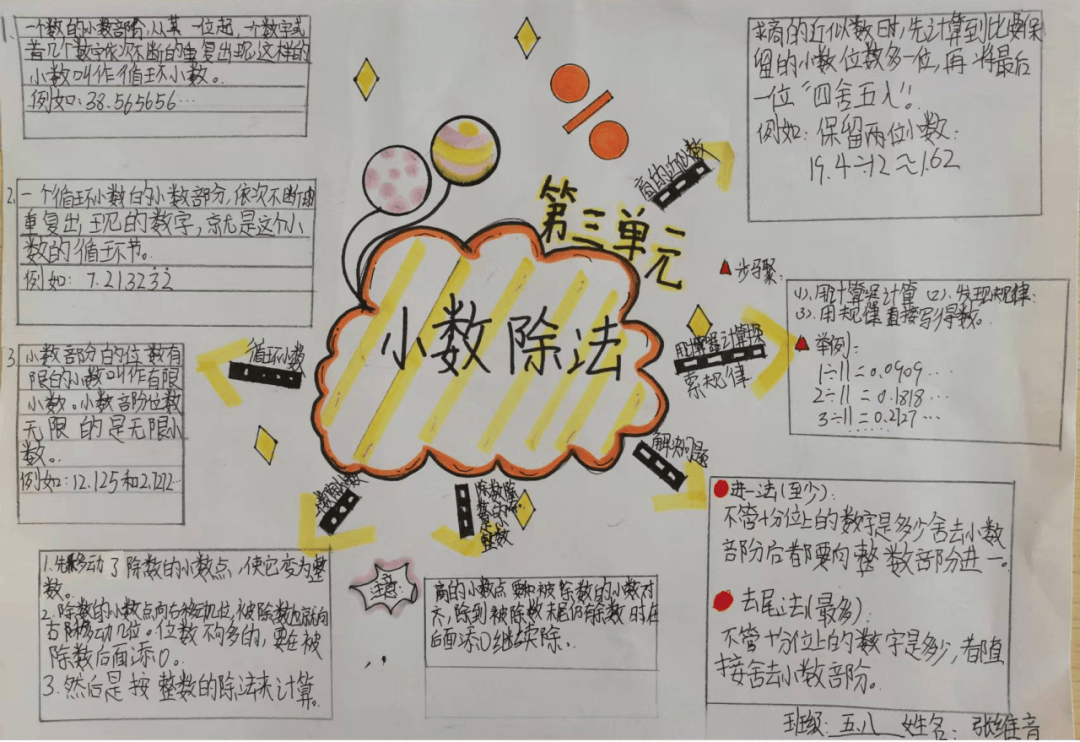 1、一个数的小数部分,从某一位起,一个数字或
者几个数字依次不断的重复出现,这样的
小数叫作循环小数。
例如:38.565656…
2、一个循环小数的小数部分,依次不断的
重复出现的数字,就是这个小
数的循环节。
例如:7.213232
3、小数部分的位数有
限的小数叫作有限
小数。小数部分位数
无限的是无限小
数。
例如:12.125和2.1212…
第三单元
小数除法
循环小数
商的近似数
用计算器计算探
索规律
解决问题
除数是
整数
求商的近似数时,先计算到比要保
留的小数位数多一位,再将最后
一位“四舍五入”!
例如:保留两位小数:
19.4÷12≈1.62
步骤:
(1).用计算器计算 (2).发现规律:
(3).用规律直接写得数。
举例:
1÷11=0.0909…
2÷11=0.1818…
3÷11=0.2727…
……
进一法(至少):
不管十分位上的数字是多少舍去小数
部分后都要向整数部分进一。
去尾法(最多):
不管十分位上的数字是多少,都直
接舍去小数部分。
1.先移动了除数的小数点,使它变为整
数。
2.除数的小数点向右移动几位,被除数也就向
右移动几位。位数不够多的,要在被
除数后面添0。
3.然后是按整数的除法来计算。
注意:
商的小数点要和被除数的小数对
齐,除到被除数末尾仍有余数时在
后面添0继续除。
班级:五.八 姓名:张维音